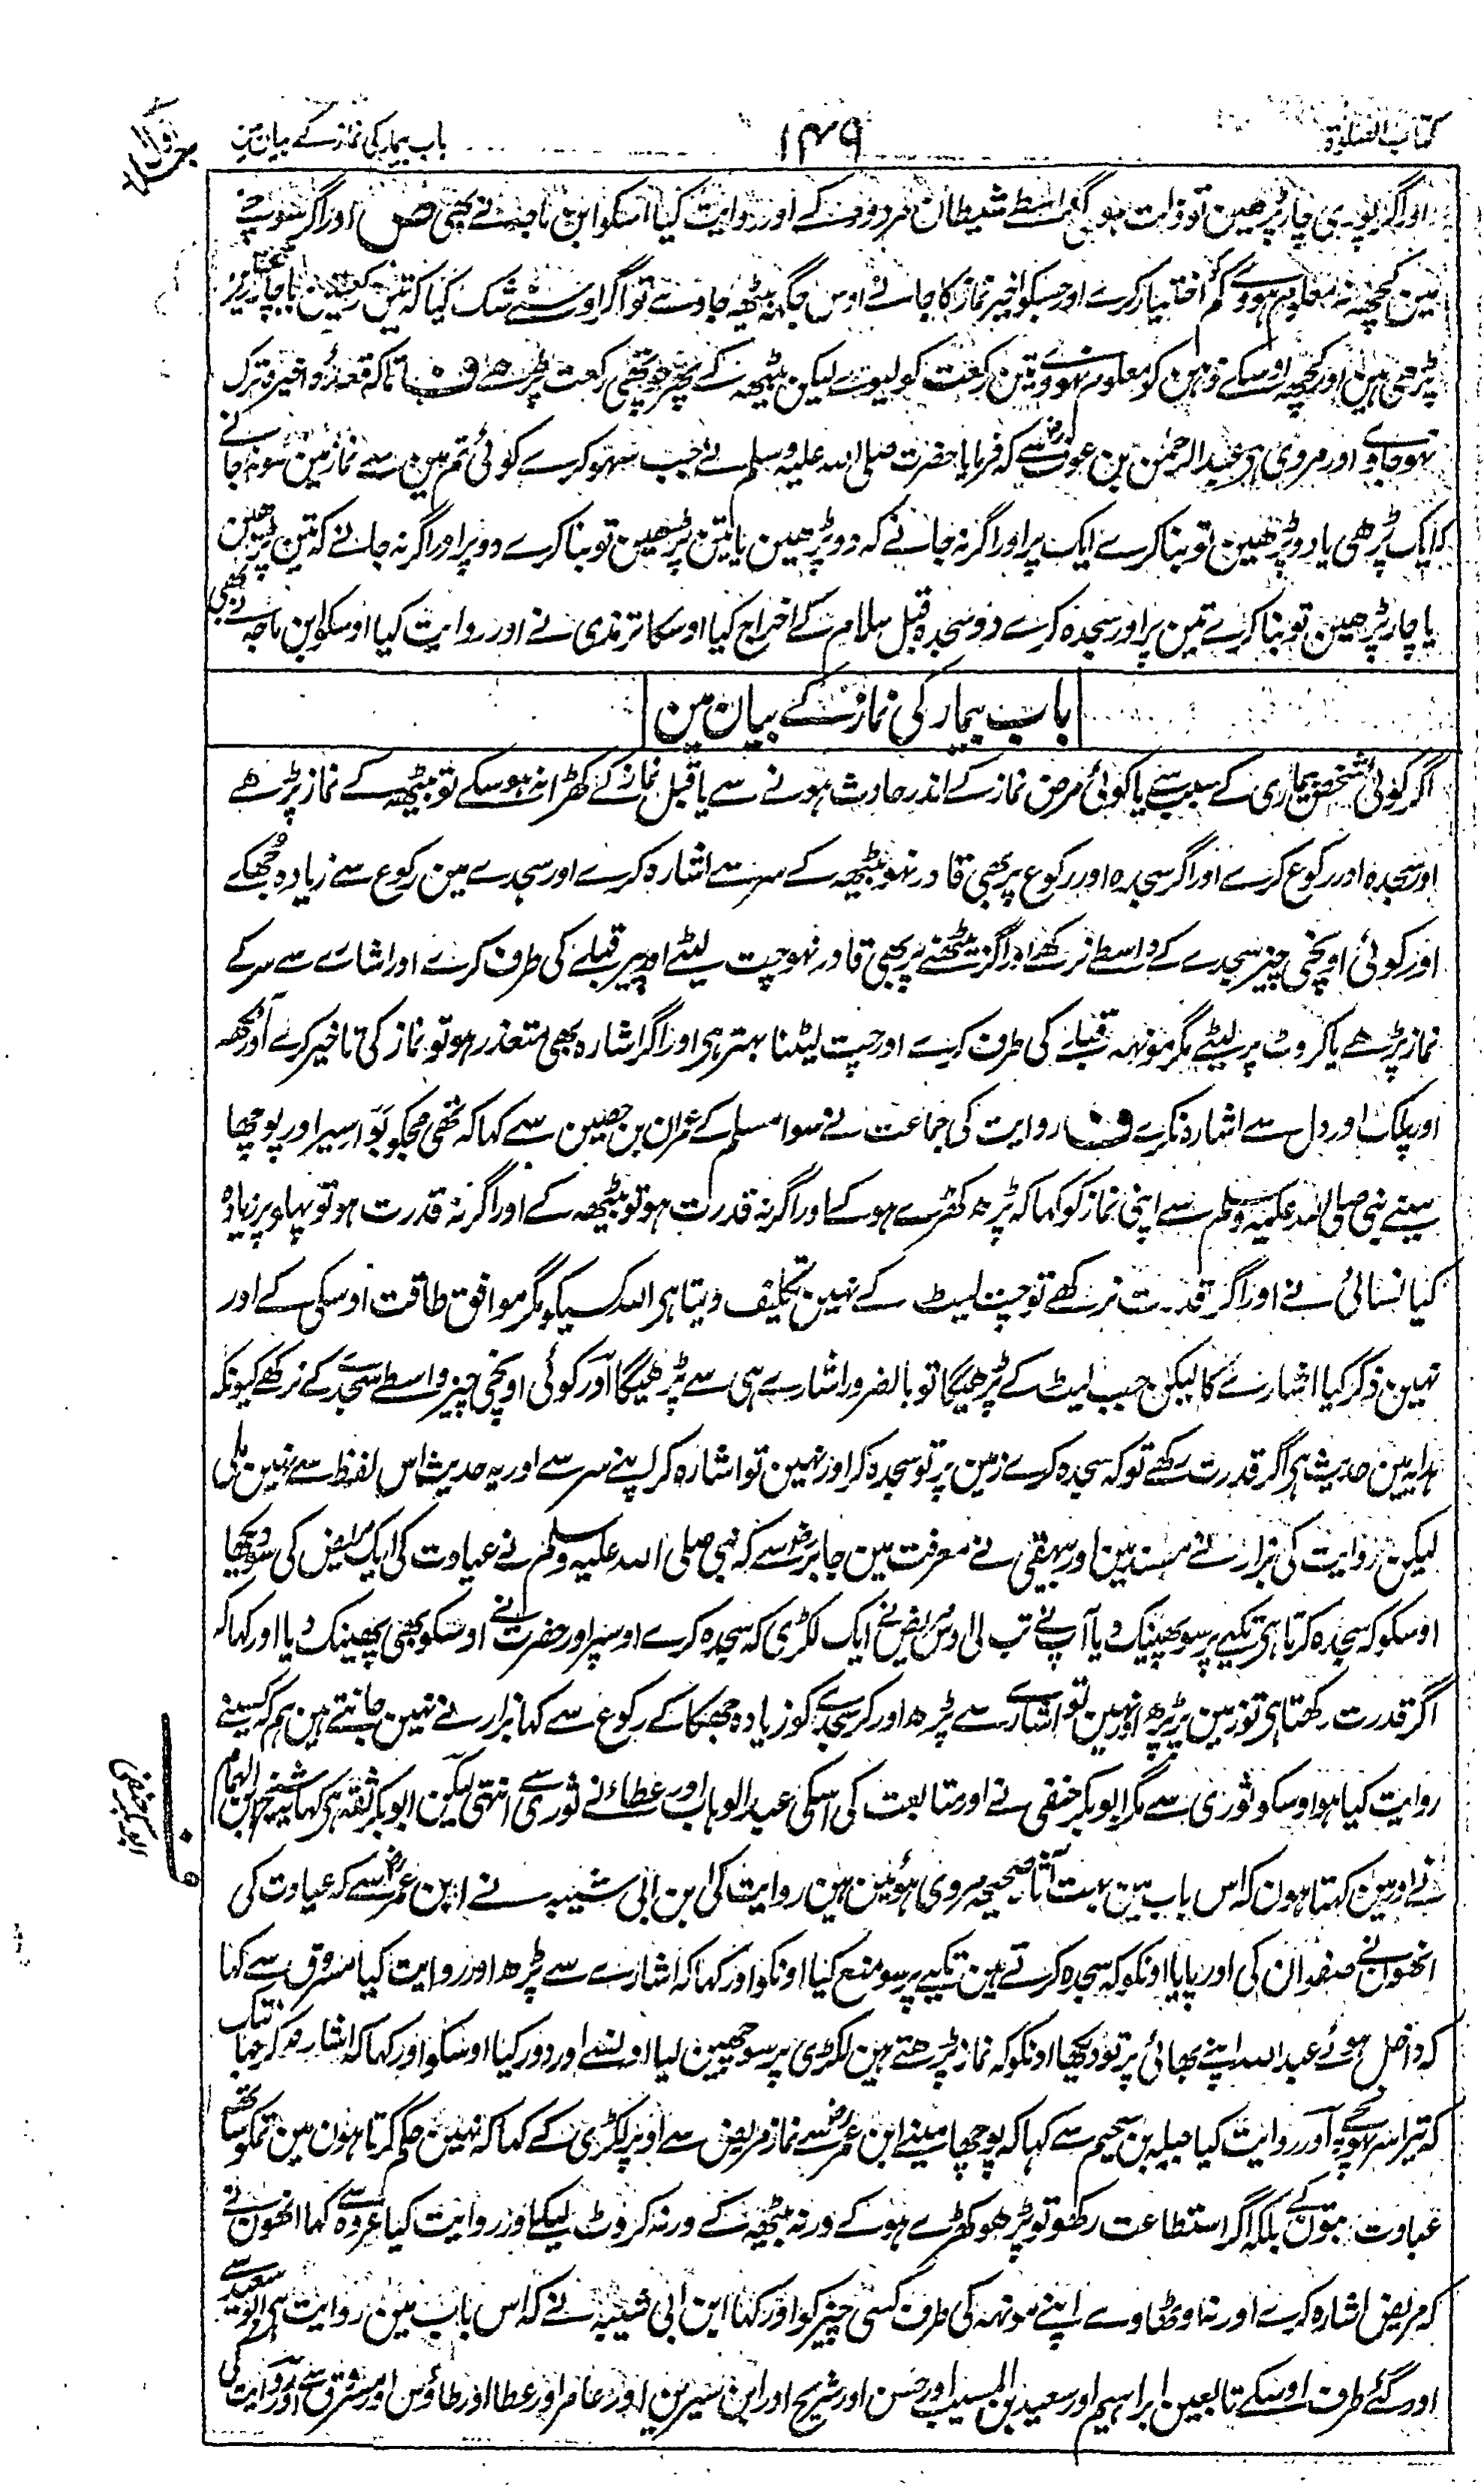 کتاب الصلوٰۃ
۱۴۹
باب بیمار کی نماز کے بیان مین
اور اگر پوری چار پڑھین تو ذلت ہو گی واسطے شیطان مردود کے اور روایت کیا اسکو ابن ماجہ نے بھی ص اور اگر سوچنے
مین کچھ نہ معلوم ہووے کم اختیار کرے اور جسکو اخیر نماز کا جانے اوس جگہ بیٹھ جاوے تو اگر اوسنے شک کیا کہ تین رکعتین یا چار
پڑھی ہین اور کچھ اوسکے ذہن کو معلوم نہووے تین رکعت کو لیوے لیکن بیٹھ کے پھر چوتھی رکعت پڑھے ف تاکہ قعدہ اخیرہ ترک
نہو جاوے اور مروی ہی عبد الرحمٰن بن عوف رض سے کہ فرمایا حضرت صلی اللہ علیہ وسلم نے جب سہو کرے کوئی تم مین سے نماز مین سو نہ جانے
کہ ایک پڑھی یا دو پڑھین تو بنا کرے ایک پر اور اگر نہ جانے کہ دو پڑھین یا تین پڑھین تو بنا کرے دو پر اور اگر نہ جانے کہ تین پڑھین
یا چار پڑھین تو بنا کرے تین پر اور سجدہ کرے دو سجدہ قبل سلام کے اخراج کیا اوسکا ترمذی نے اور روایت کیا اوسکو ابن ماجہ نے بھی
باب بیمار کی نماز کے بیان مین
اگر کوئی شخص بیماری کے سبب سے یا کوئی مرض نماز کے اندر حادث ہونے سے یا قبل نماز کے کھڑا نہ ہو سکے تو بیٹھ کے نماز پڑھے
اور سجدہ اور رکوع کرے اور اگر سجدہ اور رکوع پر بھی قادر نہو بیٹھ کے سر سے اشارہ کرے اور سجدے مین رکوع سے زیادہ جُھکے
اور کوئی اونچی چیز سجدے کے واسطے نرکھے اور اگر بیٹھنے پر بھی قادر نہو چت لیٹے اور پیر قبلے کی طرف کرے اور اشارے سے سر کے
نماز پڑھے یا کروٹ پر لیٹے مگر مونہہ قبلے کی طرف کرے اور چت لیٹنا بہتر ہی اور اگر اشارہ بھی متعذر ہو تو نماز کی تاخیر کرے آنکھ
اور پلک اور دل سے اشارہ نکرے ف روایت کی جماعت نے سوا مسلم کے عمران بن حصین سے کہا کہ تھی مجکو بواسیر اور پوچھا
مینے نبی صلی اللہ علیہ وسلم سے اپنی نماز کو کہا کہ پڑھ کھڑے ہو کے اور اگر نہ قدرت ہو تو بیٹھ کے اور اگر نہ قدرت ہو تو پہلو پر زیادہ
کیا نسائی نے اور اگر قدرت نرکھے تو چت لیٹ کے نہین تکلیف دیتا ہی اللہ کسیکو مگر موافق طاقت اوسکی کے اور
نہین ذکر کیا اشارے کا لیکن جب لیٹ کے پڑھیگا تو بالضرور اشارے ہی سے پڑھیگا اور کوئی اونچی چیز واسطے سجدے کے نرکھے کیونکہ
ہدایہ مین حدیث ہی اگر قدرت رکھے تو کہ سجدہ کرے زمین پر تو سجدہ کر اور نہین تو اشارہ کر اپنے سر سے اور یہ حدیث اس لفظ سے نہین ملی
لیکن روایت کی بزار نے مسند مین اور بیہقی نے معرفت مین جابر رض سے کہ نبی صلی اللہ علیہ وسلم نے عیادت کی ایک مریض کی سو دیکھا
اوسکو کہ سجدہ کرتا ہی تکیے پر سو پھینک دیا آپ نے تب لی اوس مریض نے ایک لکڑی کہ سجدہ کرے اوسپر اور حضرت نے اوسکو بھی پھینک دیا اور کہا کہ
اگر قدرت رکھتا ہی تو زمین پر پڑھ اور نہین تو اشارے سے پڑھ اور کر سجدے کو زیادہ جھکا کے رکوع سے کہا بزار نے نہین جانتے ہین ہم کہ کسینے
روایت کیا ہو اوسکو ثوری سے مگر ابو بکر حنفی نے اور متابعت کی اسکی عبد الوہاب اور عطاء نے ثوری سے انتہی لیکن ابو بکر ثقہ ہی کہا شیخ ابن الہمام
نے اور مین کہتا ہون کہ اس باب مین بہت آثار صحیحہ مروی ہوئین ہین روایت کی ابن ابی شیبہ نے ابن عمر رض سے کہ عیادت کی
انھون نے صفوان کی اور پایا اونکو کہ سجدہ کرتے ہین تکیے پر سو منع کیا اونکو اور کہا کہ اشارے سے پڑھ اور روایت کیا مسروق سے کہا
کہ داخل ہوئے عبد اللہ اپنے بھائی پر تو دیکھا اونکو کہ نماز پڑھتے ہین لکڑی پر سو چھین لیا اونسے اور دور کیا اوسکو اور کہا کہ اشارہ کر جہانتک
کہ تیرا سر پہونچے اور روایت کیا جبلہ بن سحیم سے کہا کہ پوچھا مینے ابن عمر رض سے نماز مریض سے اوپر لکڑی کے کہا کہ نہین حکم کرتا ہون مین تمکو ساتھ
عبادت بتون کے بلکہ اگر استطاعت رکھو تو پڑھو کھڑے ہو کے ورنہ بیٹھ کے ورنہ کروٹ لیکے اور روایت کیا عروہ سے کہا انھون نے
کہ مریض اشارہ کرے اور نہ اوٹھاوے اپنے مونہہ کی طرف کسی چیز کو اور کہا ابن ابی شیبہ نے کہ اس باب مین روایت ہی ابو سعید سے
اور گئے طرف اوسکے تابعین ابراہیم اور سعید بن المسیب اور حسن اور شریح اور ابن سیرین اور عامر اور عطا اور طاؤس اور مسروق نے اور روایت کی
ابو بکر حنفی